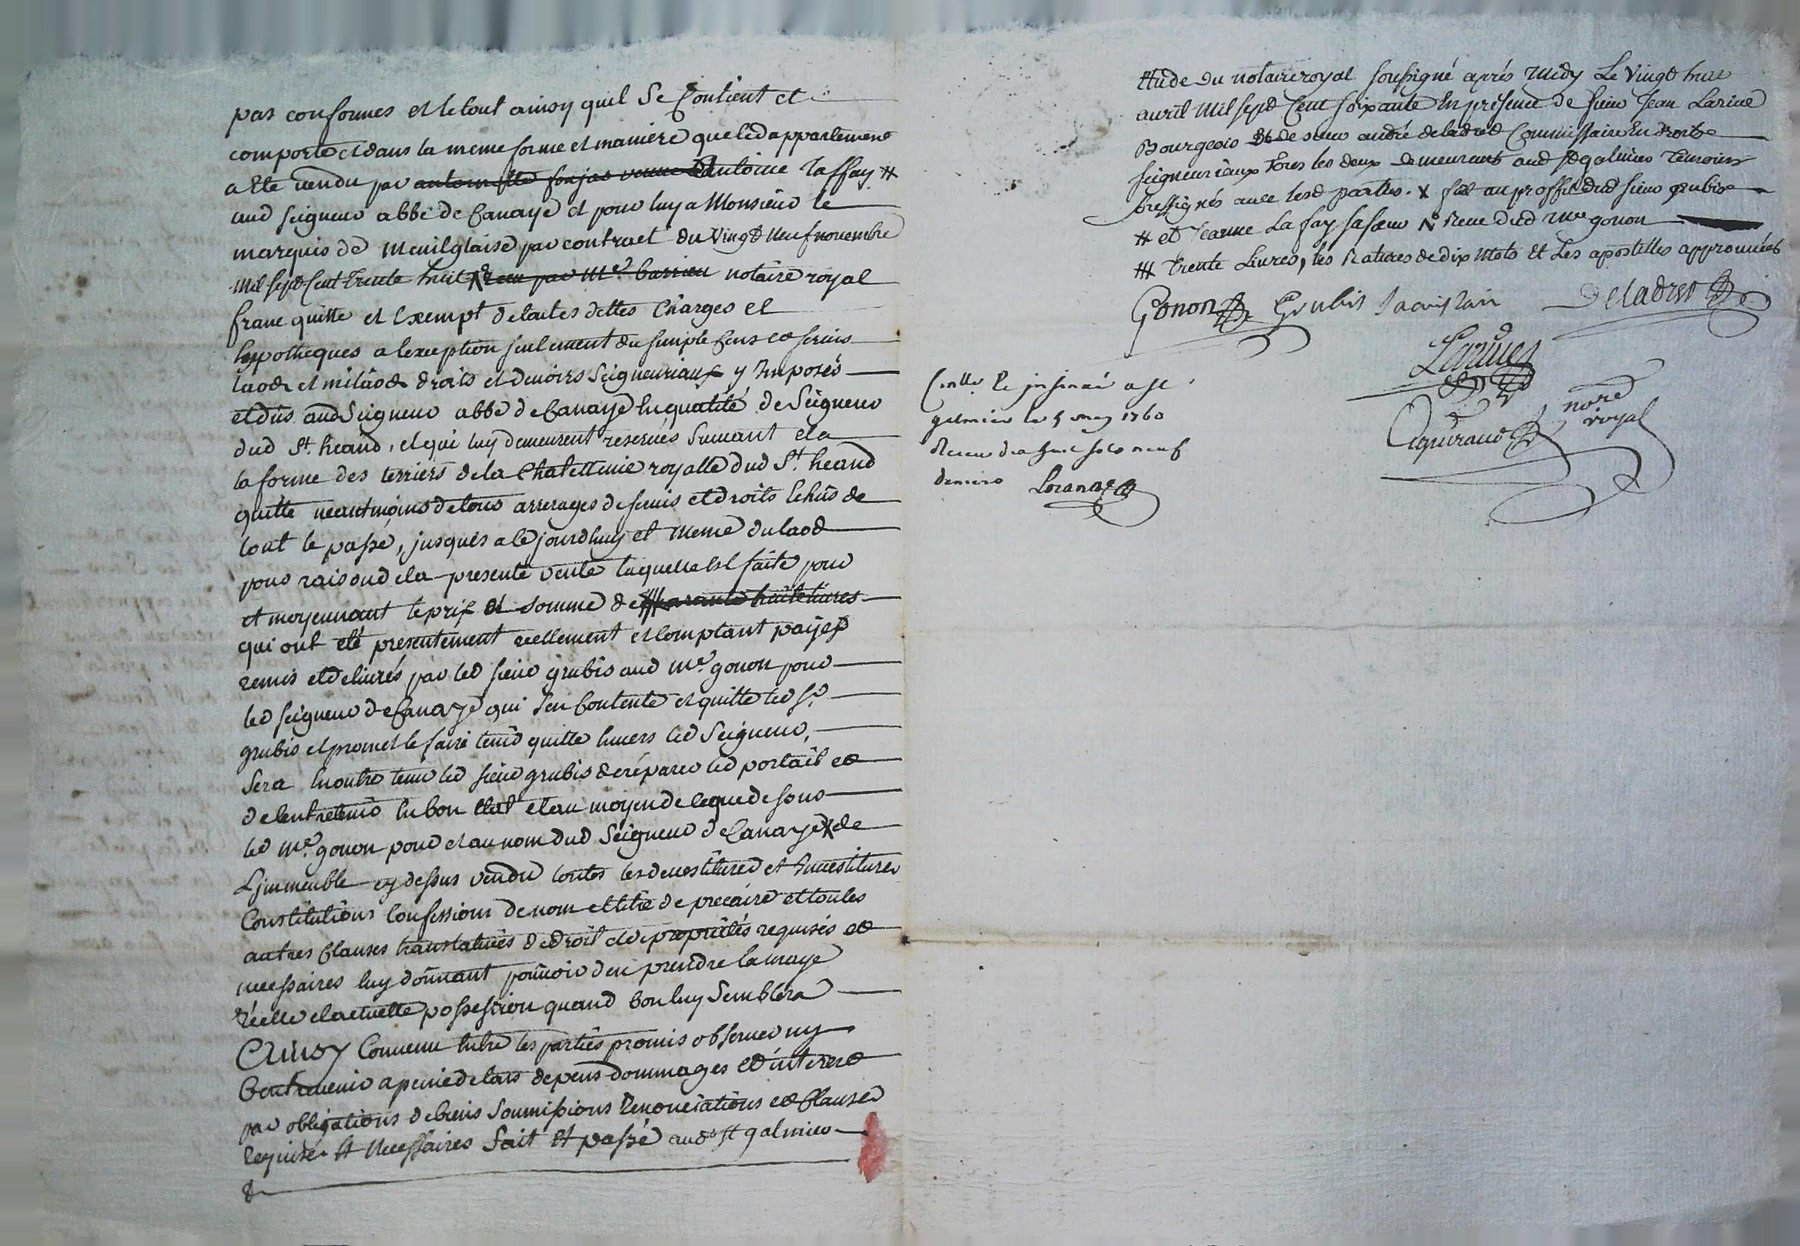 pas conformes et le tout ainsy quil Se Contient et
comporte et dans la meme forme et maniere que led appartement
a eté vendu par Antoine Laffay #
aud seigneur abbé de Canaye et pour luy a Monsieur le
marquis de Menilglaise par contract du Vingt neuf novembre
mil sept Cent trente huit recu par Me. Barrieu notaire royal
franc quitte et Exempt de toutes dettes Charges et
hypotheques a lexception seulement du simple Cens et servis
laods et milaods droits et devoirs Seigneuriaux y Imposés
et dus aud Seigneur abbé de Canaye En qualité de Seigneur
dud St. heand, et qui luy demeurent reservés Suivant et a
la forme des terriers de la Chatellenie royalle dud St. heand
quitte neantmoins de tous arrerages de servis et droits Echus de
tout le passé, jusques a ce jourdhuy et meme du laod
pour raison de la presente vente laquelle Est faite pour
et moyennant le prix et somme de ### quarante huit livres
qui ont eté presentement reellement et Comptant payés
remis et delivrés par led sieur grubis aud Me. gonon pour
led seigneur de Canaye qui s'en Contente et quitte led Sr.
grubis et promet le faire tenir quitte Envers led Seigneur,
Sera En outre tenu led sieur grubis de réparer led portail et
de lentretenir En bon Etat et au moyen de ce que dessus
led Me. gonon pour et au nom dud Seigneur de Canaye X de
L'immeuble cy dessus vendu toutes les devestitures et Investitures
Constitutions Confessions de nom et titre de precaire et toutes
autres Clauses translatives de droit et de proprietés requises et
necessaires luy donnant pouvoir d'en prendre la vraye
réelle et actuelle possession quand bon luy Semblera
Ainsy Convenu Entre les parties promis observer ny
Contrevenir a peine de tous depens dommages et interest
par obligations de biens Soumissions Renonciations et Clauses
Requises Et Necessaires Fait Et passé aud St galmier
Etude du notaire royal soussigné aprés midy Le Vingt huit
avril Mil sept Cent soixante En présence de sieur Jean Larive
Bourgeois de sieur andré deladret Commissaire En droits
seigneuriaux tous les deux demeurant aud St galmier temoins
soussignés avec lesd parties. X fait au proffit dud sieur grubis
# et Jeanne La fay sa sœur X Reçu dud Me gonon
### trente Livres, les Ratures de dix Mots Et Les apostilles approuvées
Gonon Grubis Deladret
Larive
notre
royal
Contlle. et insinué a St.
galmier le 5 may 1760
Receu dix huit sols neuf
deniers